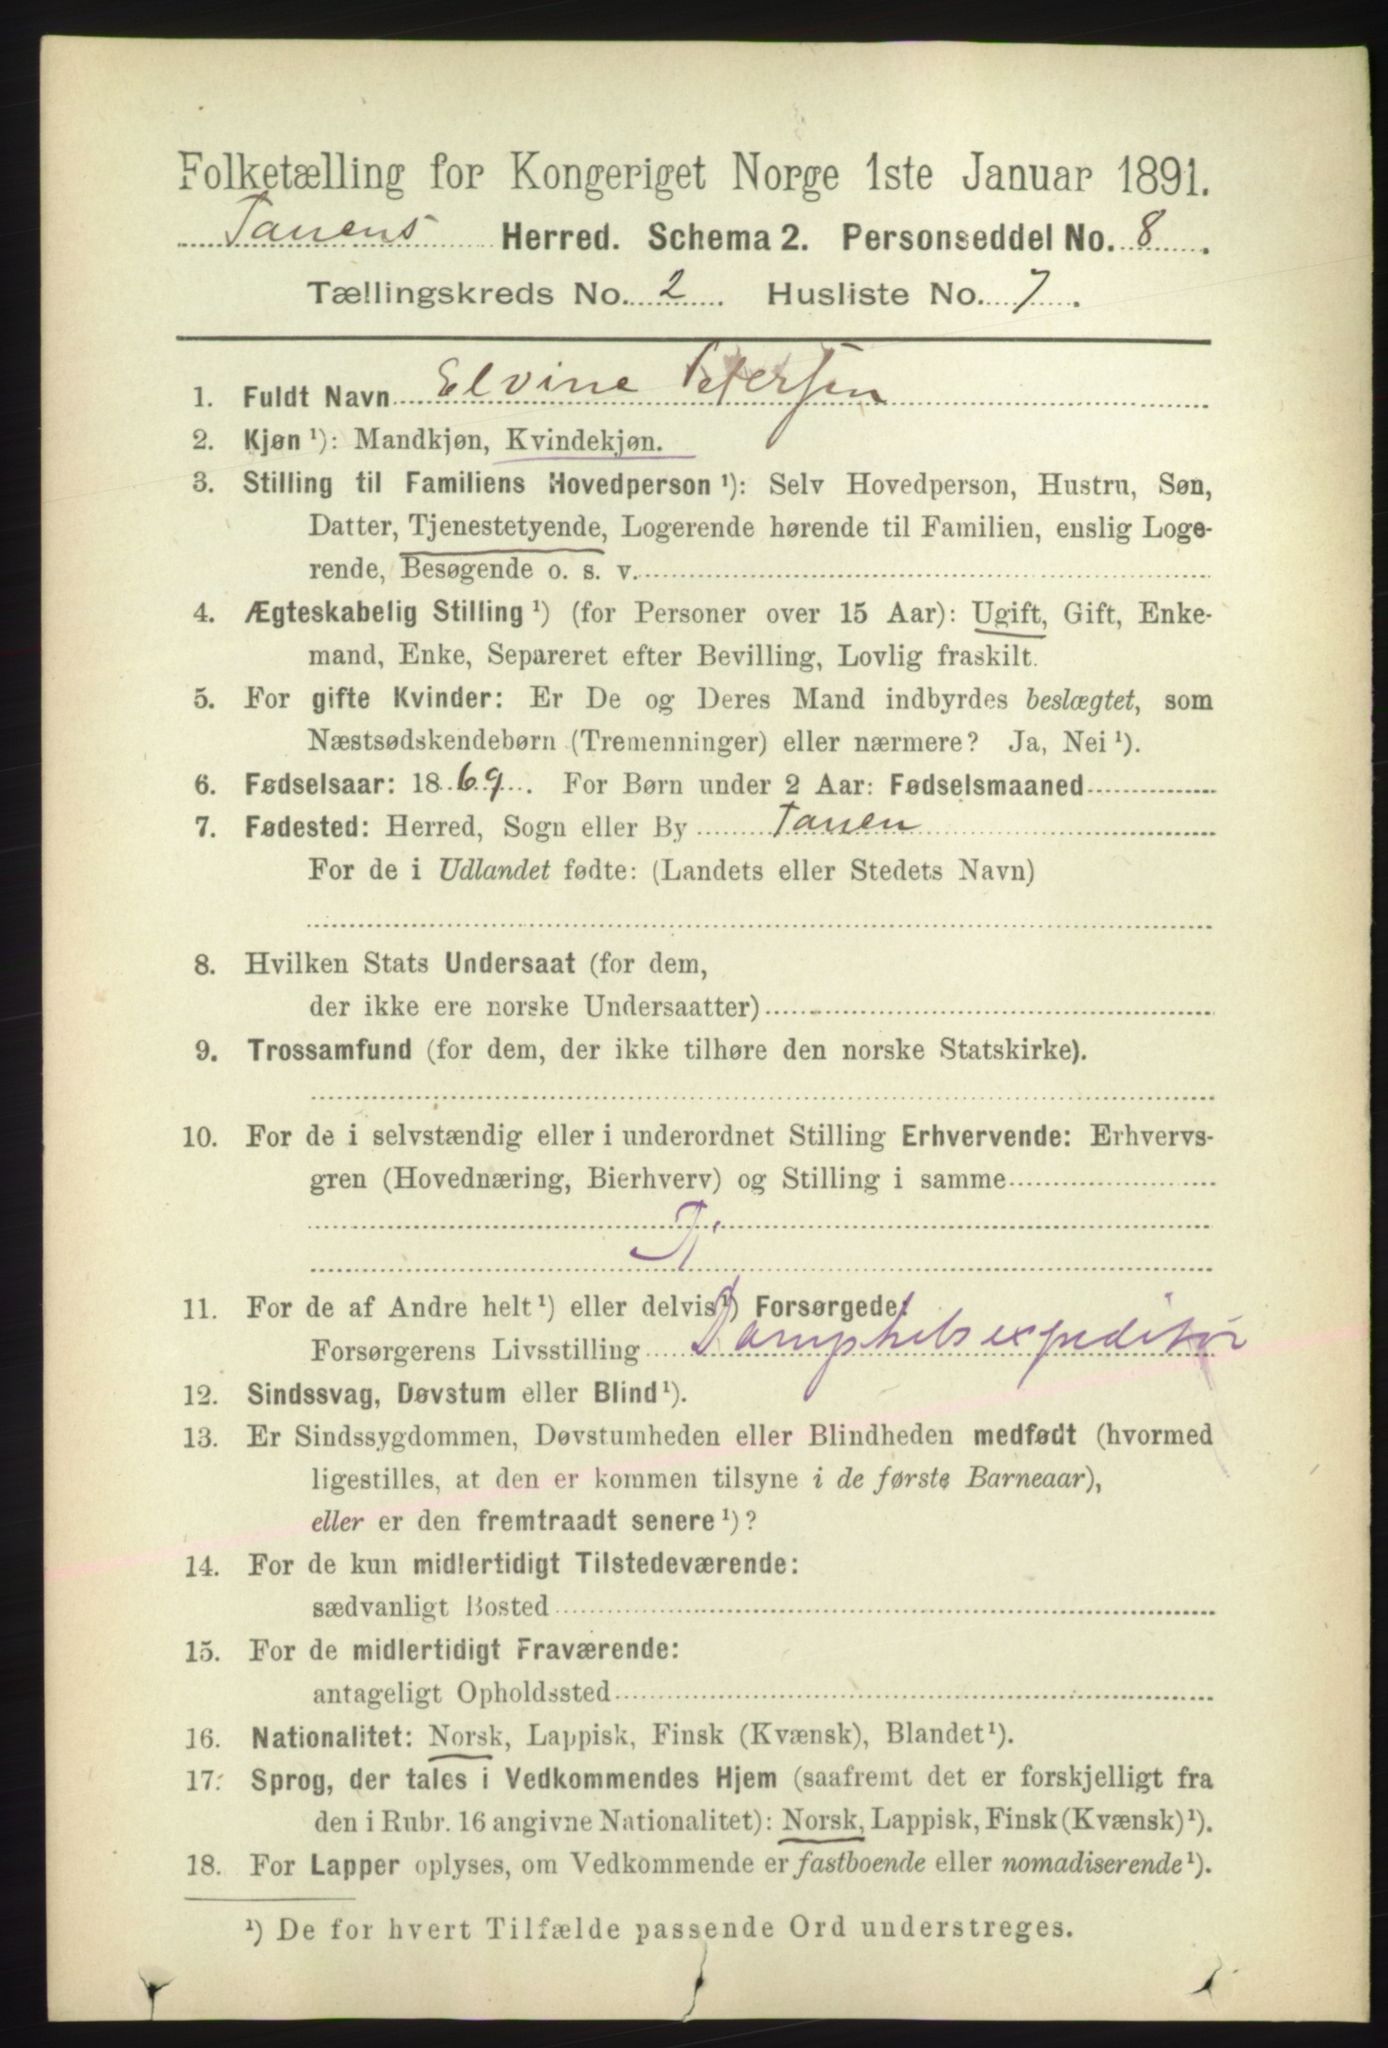 Folketælling for Kongeriget Norge 1ste Januar 1891.
Tanens Herred. Schema 2. Personseddel No. 8.
Tællingskreds No. 2. Husliste No. 7.
1. Fuldt Navn Elvine Petersen
2. Kjøn ¹): Mandkjøn, Kvindekjøn.
3. Stilling til Familiens Hovedperson ¹): Selv Hovedperson, Hustru, Søn,
Datter, Tjenestetyende, Logerende hørende til Familien, enslig Loge-
rende, Besøgende o. s. v.
4. Ægteskabelig Stilling ¹) (for Personer over 15 Aar): Ugift, Gift, Enke-
mand, Enke, Separeret efter Bevilling, Lovlig fraskilt.
5. For gifte Kvinder: Er De og Deres Mand indbyrdes beslægtet, som
Næstsødskendebørn (Tremenninger) eller nærmere? Ja, Nei ¹).
6. Fødselsaar: 1869. For Børn under 2 Aar: Fødselsmaaned
7. Fødested: Herred, Sogn eller By Tanen
For de i Udlandet fødte: (Landets eller Stedets Navn)
8. Hvilken Stats Undersaat (for dem,
der ikke ere norske Undersaatter)
9. Trossamfund (for dem, der ikke tilhøre den norske Statskirke).
10. For de i selvstændig eller i underordnet Stilling Erhvervende: Erhvervs-
gren (Hovednæring, Bierhverv) og Stilling i samme
T.
11. For de af Andre helt ¹) eller delvis ¹) Forsørgede:
Forsørgerens Livsstilling Dampskibsexpeditør
12. Sindssvag, Døvstum eller Blind ¹).
13. Er Sindssygdommen, Døvstumheden eller Blindheden medfødt (hvormed
ligestilles, at den er kommen tilsyne i de første Barneaar),
eller er den fremtraadt senere ¹)?
14. For de kun midlertidigt Tilstedeværende:
sædvanligt Bosted
15. For de midlertidigt Fraværende:
antageligt Opholdssted
16. Nationalitet: Norsk, Lappisk, Finsk (Kvænsk), Blandet ¹).
17. Sprog, der tales i Vedkommendes Hjem (saafremt det er forskjelligt fra
den i Rubr. 16 angivne Nationalitet): Norsk, Lappisk, Finsk (Kvænsk) ¹).
18. For Lapper oplyses, om Vedkommende er fastboende eller nomadiserende ¹).
¹) De for hvert Tilfælde passende Ord understreges.